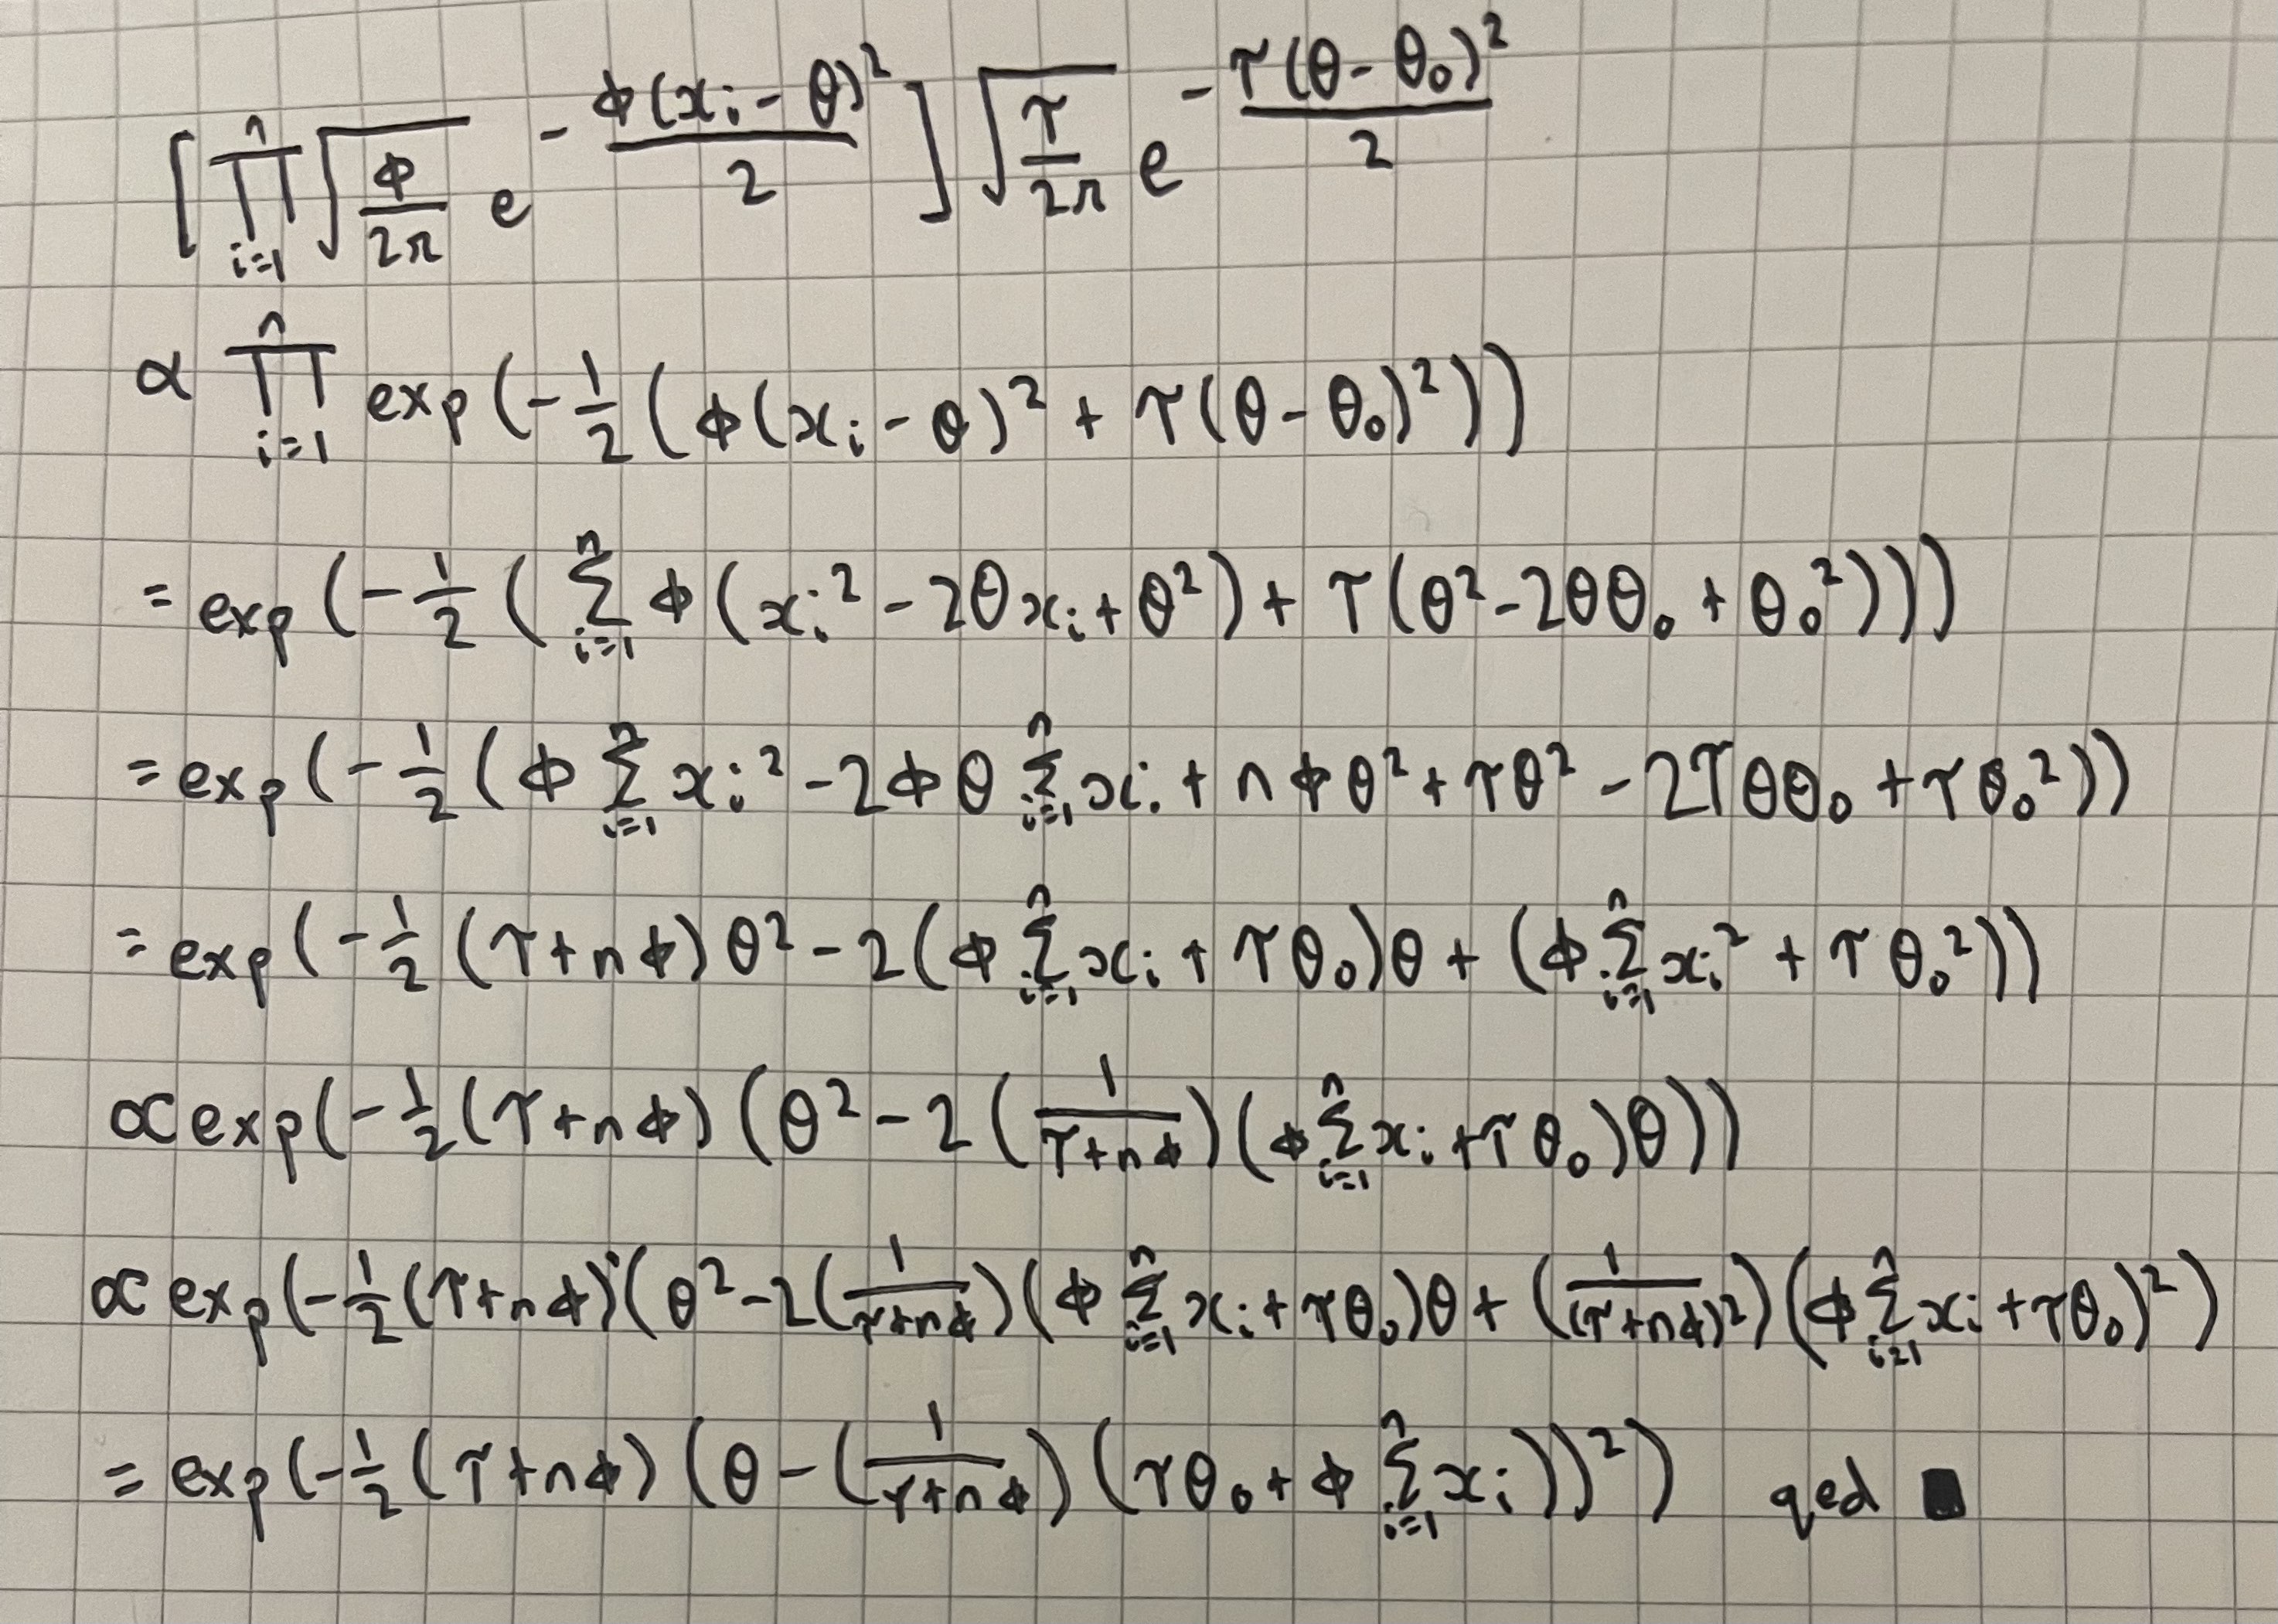 [∏_{i=1}^{n} √(ϕ/2π) e^{-ϕ(x_i - θ)²/2}] √(τ/2π) e^{-τ(θ - θ₀)²/2}
∝ ∏_{i=1}^{n} exp(-1/2(ϕ(x_i - θ)² + τ(θ - θ₀)²))
= exp(-1/2(∑_{i=1}^{n} ϕ(x_i² - 2θx_i + θ²) + τ(θ² - 2θθ₀ + θ₀²)))
= exp(-1/2(ϕ∑_{i=1}^{n} x_i² - 2ϕθ∑_{i=1}^{n} x_i + nϕθ² + τθ² - 2τθθ₀ + τθ₀²))
= exp(-1/2(τ+nϕ)θ² - 2(ϕ∑_{i=1}^{n} x_i + τθ₀)θ + (ϕ∑_{i=1}^{n} x_i² + τθ₀²))
∝ exp(-1/2(τ+nϕ)(θ² - 2(1/(τ+nϕ))(ϕ∑_{i=1}^{n} x_i + τθ₀)θ))
∝ exp(-1/2(τ+nϕ)(θ² - 2(1/(τ+nϕ))(ϕ∑_{i=1}^{n} x_i + τθ₀)θ + (1/(τ+nϕ)²)(ϕ∑_{i=1}^{n} x_i + τθ₀)²)
= exp(-1/2(τ+nϕ)(θ - (1/(τ+nϕ))(τθ₀ + ϕ∑_{i=1}^{n} x_i))²) qed ∎